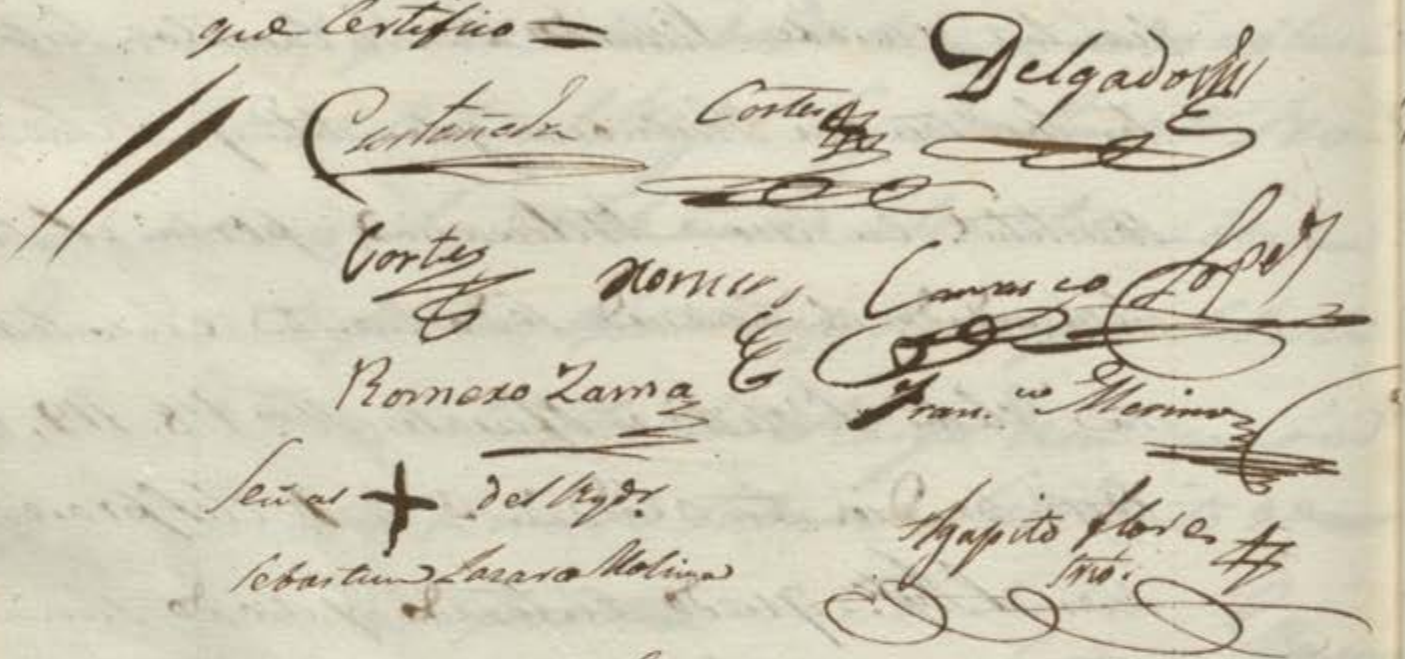 que Certifico =
Castañeda Cortes Delgado
Cortes Carrasco Lopez
Romero Zama Fran.co Merino
Señal + del Rydr.
Sebastian Lazaro Molina Agapito Flores
Srio.